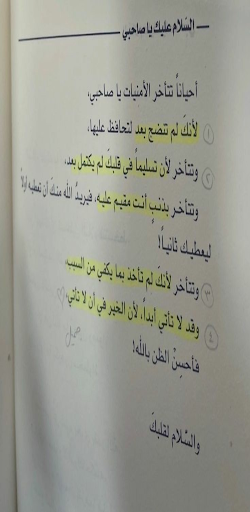 السَّلام عليك يا صاحبي
أحياناً تتأخر الأمنيات يا صاحبي،
١ لأنكَ لم تنضج بعد لتحافظ عليها،
٢ وتتأخر لأن تسليماً في قلبك لم يكتمل بعد،
وتتأخر بذنبٍ أنت مقيم عليه، فيريدُ الله منكَ أن تعطيه أولاً
ليعطيكَ ثانياً!
٣ وتتأخر لأنكَ لم تأخذ بما يكفي من السبب،
٤ وقد لا تأتي أبداً، لأن الخير في أن لا تأتي،
فأحسِنْ الظن بالله!
والسَّلام لقلبكَ